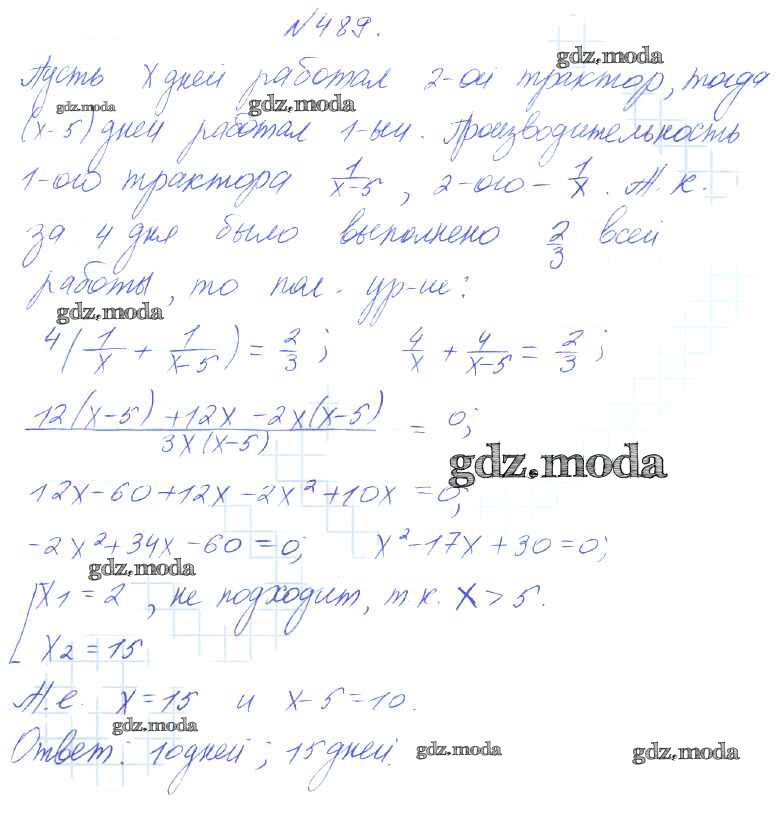 №489.
Пусть x дней работал 2-ой трактор, тогда
(x-5) дней работал 1-ый. Производительность
1-ого трактора 1/(x-5), 2-ого - 1/x. Т.к.
за 4 дня было выполнено 2/3 всей
работы, то пол. ур-ие:
4(1/x + 1/(x-5)) = 2/3; 4/x + 4/(x-5) = 2/3;
(12(x-5)+12x-2x(x-5))/(3x(x-5)) = 0;
12x-60+12x-2x²+10x=0;
-2x²+34x-60=0; x²-17x+30=0;
[x1=2, не подходит, т.к. x>5.
x2=15
Т.е. x=15 и x-5=10.
Ответ: 10 дней; 15 дней.
gdz.moda
gdz.moda
gdz.moda
gdz.moda
gdz.moda
gdz.moda
gdz.moda
gdz.moda
gdz.moda